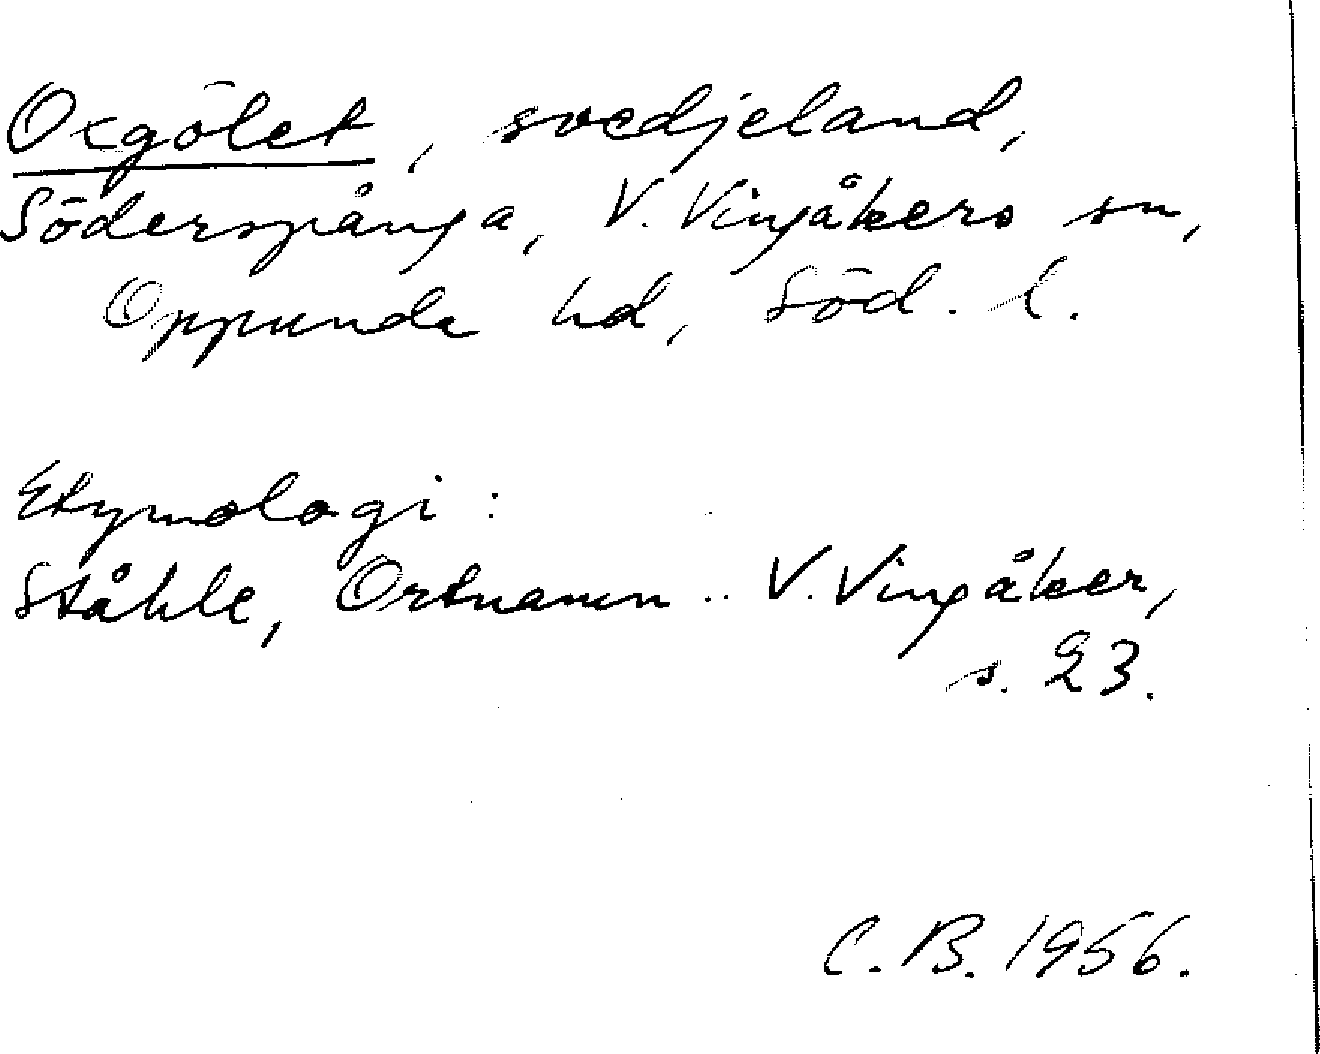 Oxgölet, svedjeland,
Söderspånga, V. Vingåkers sn,
Oppunda hd, Söd. l.
Etymologi:
Ståhle, Ortnamn .. V. Vingåker,
s. 23.
C. B. 1956.